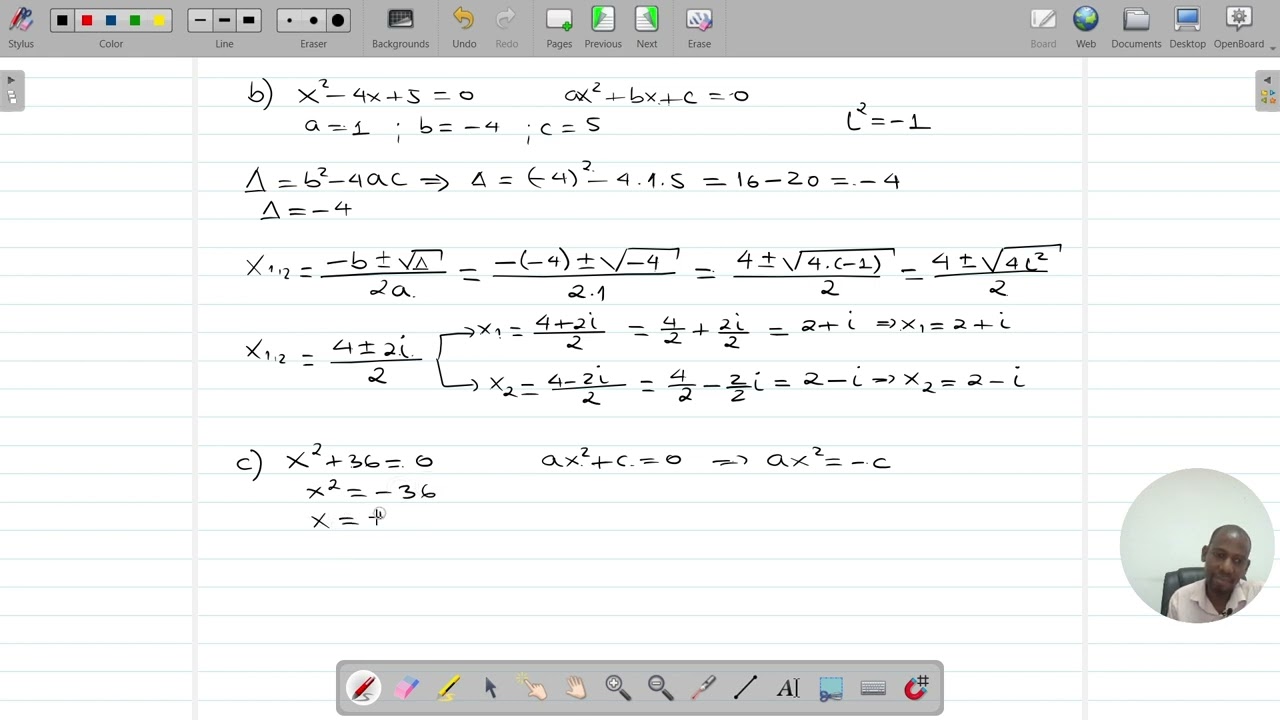 Stylus Color Line Eraser Backgrounds Undo Redo Pages Previous Next Erase Board Web Documents Desktop OpenBoard
b) x² - 4x + 5 = 0 ax² + bx + c = 0
a = 1 ; b = -4 ; c = 5 i² = -1
Δ = b² - 4ac ⇒ Δ = (-4)² - 4.1.5 = 16 - 20 = -4
Δ = -4
x₁,₂ = (-b ± √Δ)/2a = (-(-4) ± √-4)/2.1 = (4 ± √4.(-1))/2 = (4 ± √4i²)/2
x₁,₂ = (4 ± 2i)/2
x₁ = (4+2i)/2 = 4/2 + 2i/2 = 2 + i ⇒ x₁ = 2 + i
x₂ = (4-2i)/2 = 4/2 - 2/2 i = 2 - i ⇒ x₂ = 2 - i
c) x² + 36 = 0 ax² + c = 0 ⇒ ax² = -c
x² = -36
x = +
AI